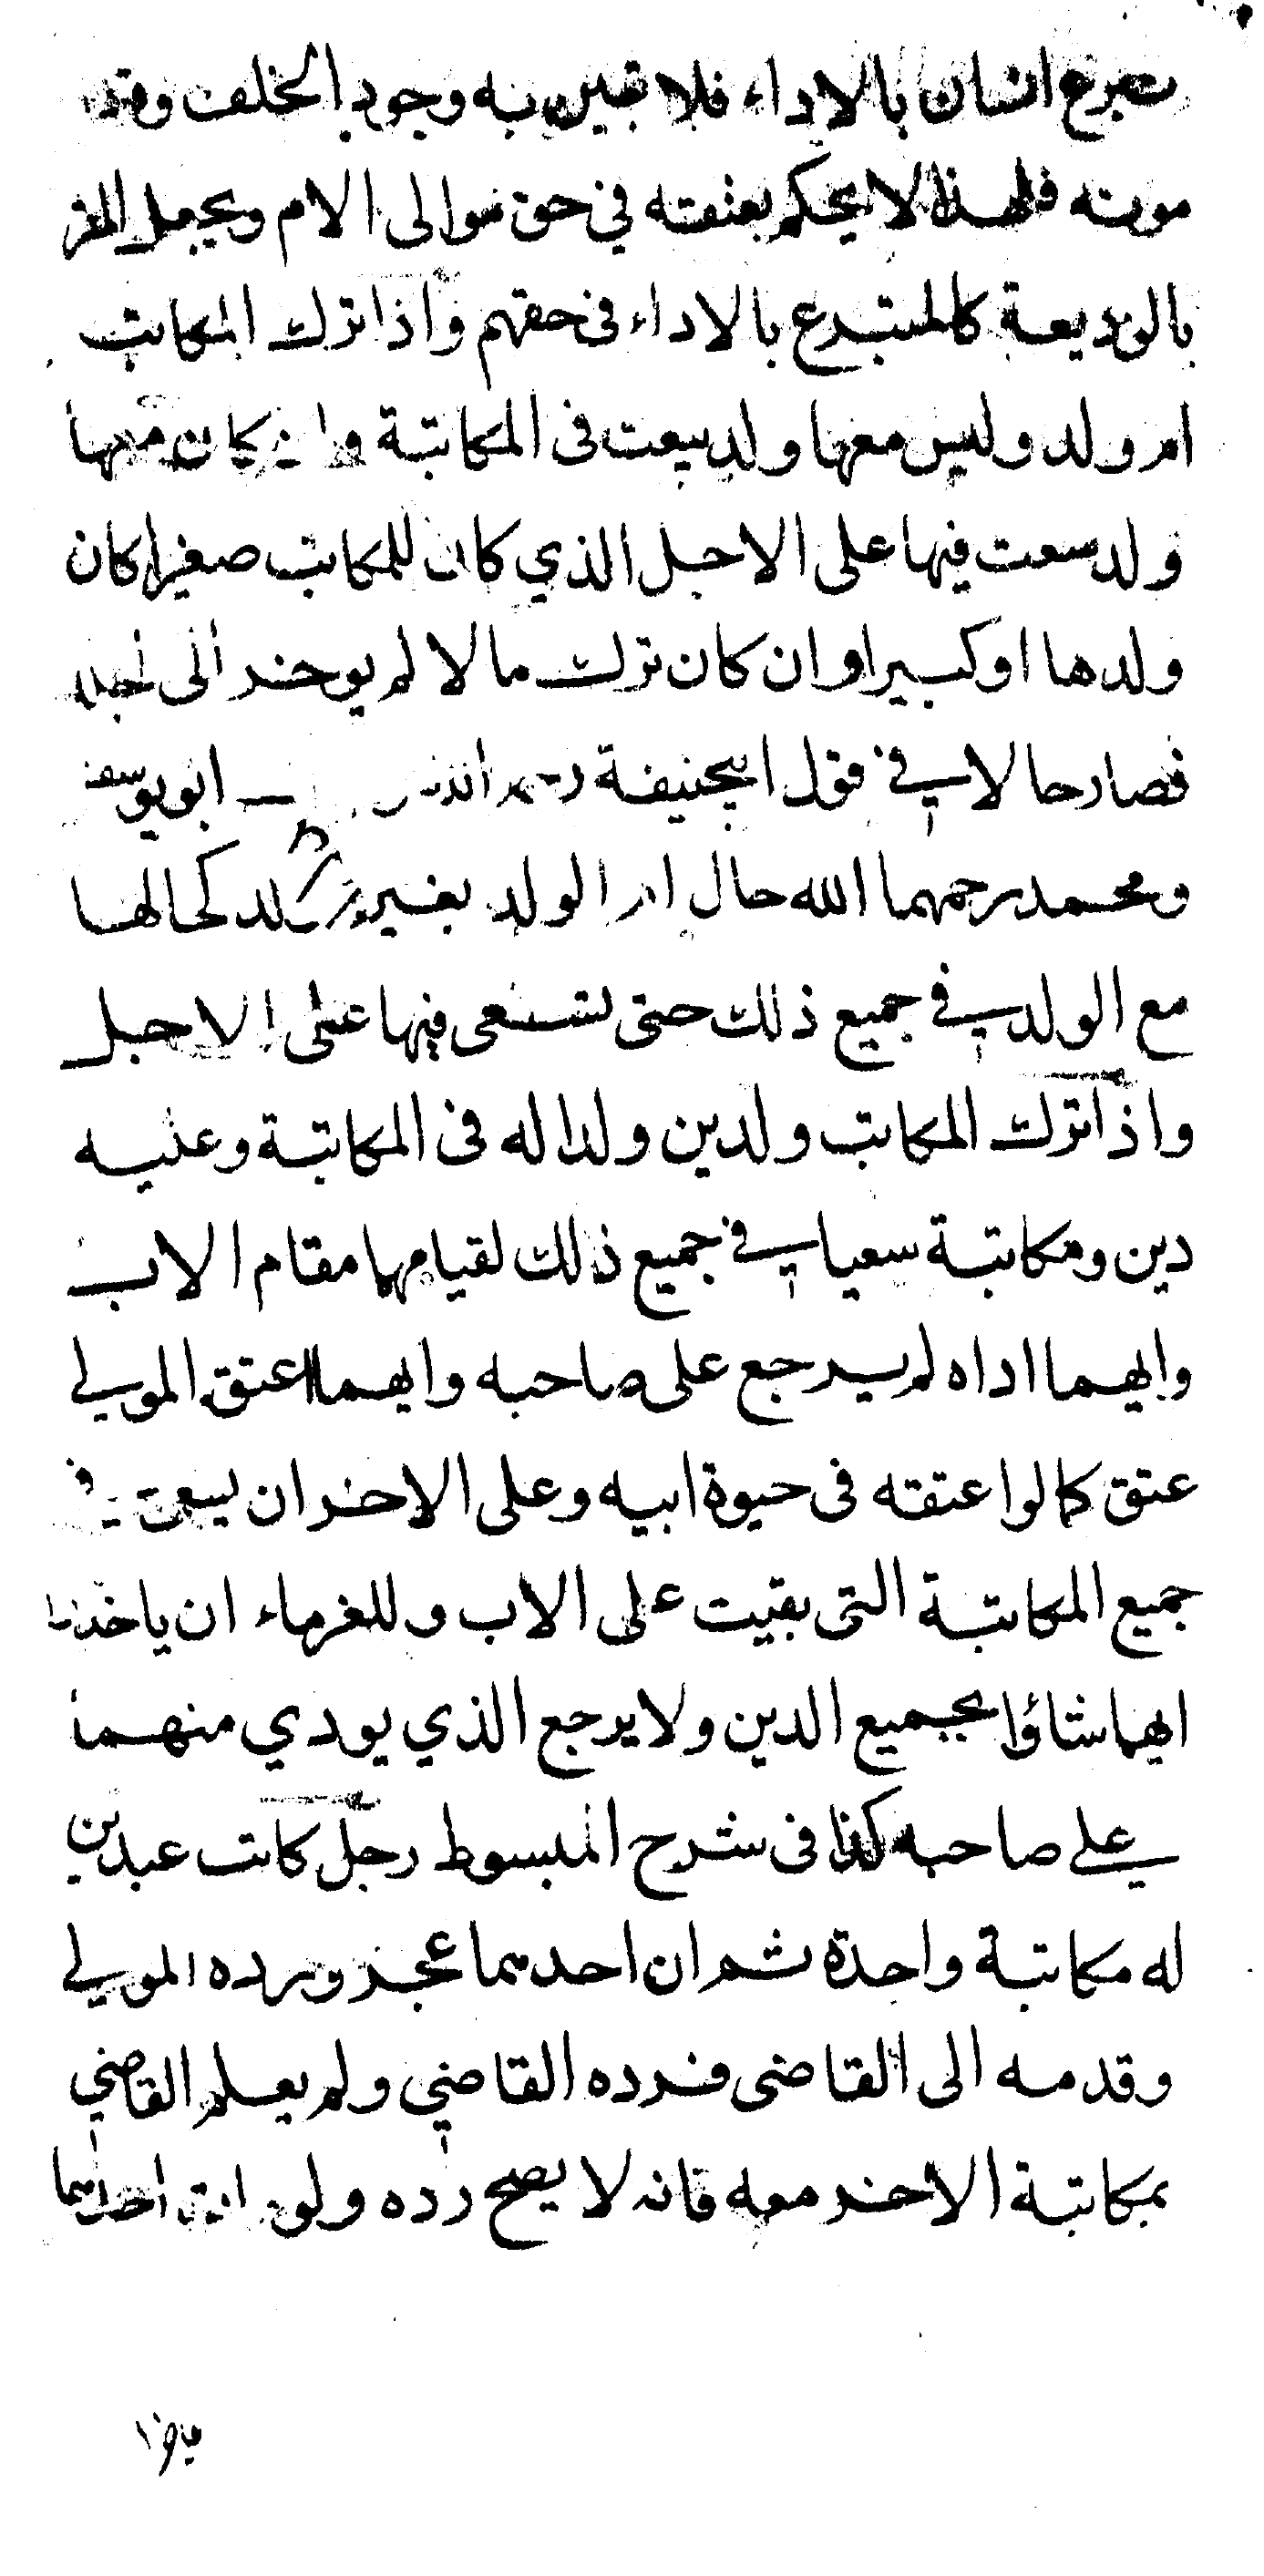 تبرع انسان بالاداء فلا تبين به وجود الخلف وقت
موته فلهذا لا يحكم بعتقه في حق موالى الام ويجعل المقر
بالوديعة كالمتبرع بالاداء فى حقهم واذا ترك المكاتب
ام ولد وليس معها ولد بيعت فى المكاتبة وان كان معها
ولد سعت فيها على الاجل الذي كان للمكاتب صغيرا كان
ولدها او كبيرا وان كان ترك مالا لم يوخر الى اجله
فصار حالا في قول ابيحنيفة رحمه الله ابو يوسف
ومحمد رحمهما الله حال ام الولد بغير ولد كحالها
مع الولد في جميع ذلك حتى تسعى فيها على الاجل
واذا ترك المكاتب ولدين ولدا له فى المكاتبة وعليه
دين ومكاتبة سعيا في جميع ذلك لقيامهما مقام الاب
وايهما اداه لم يرجع على صاحبه وايهما اعتق المولي
عتق كما لو اعتقه فى حيوة ابيه وعلى الاخر ان يسعى في
جميع المكاتبة التى بقيت على الاب وللغرماء ان ياخذوا
ايهما شاؤا بجميع الدين ولا يرجع الذي يودي منهما
علي صاحبه كذا فى شرح المبسوط رجل كاتب عبدين
له مكاتبة واحدة ثم ان احدهما عجز ورده المولي
وقدمه الى القاضى فرده القاضي ولم يعلم القاضي
بمكاتبة الاخر معه فانه لا يصح رده ولو احدهما